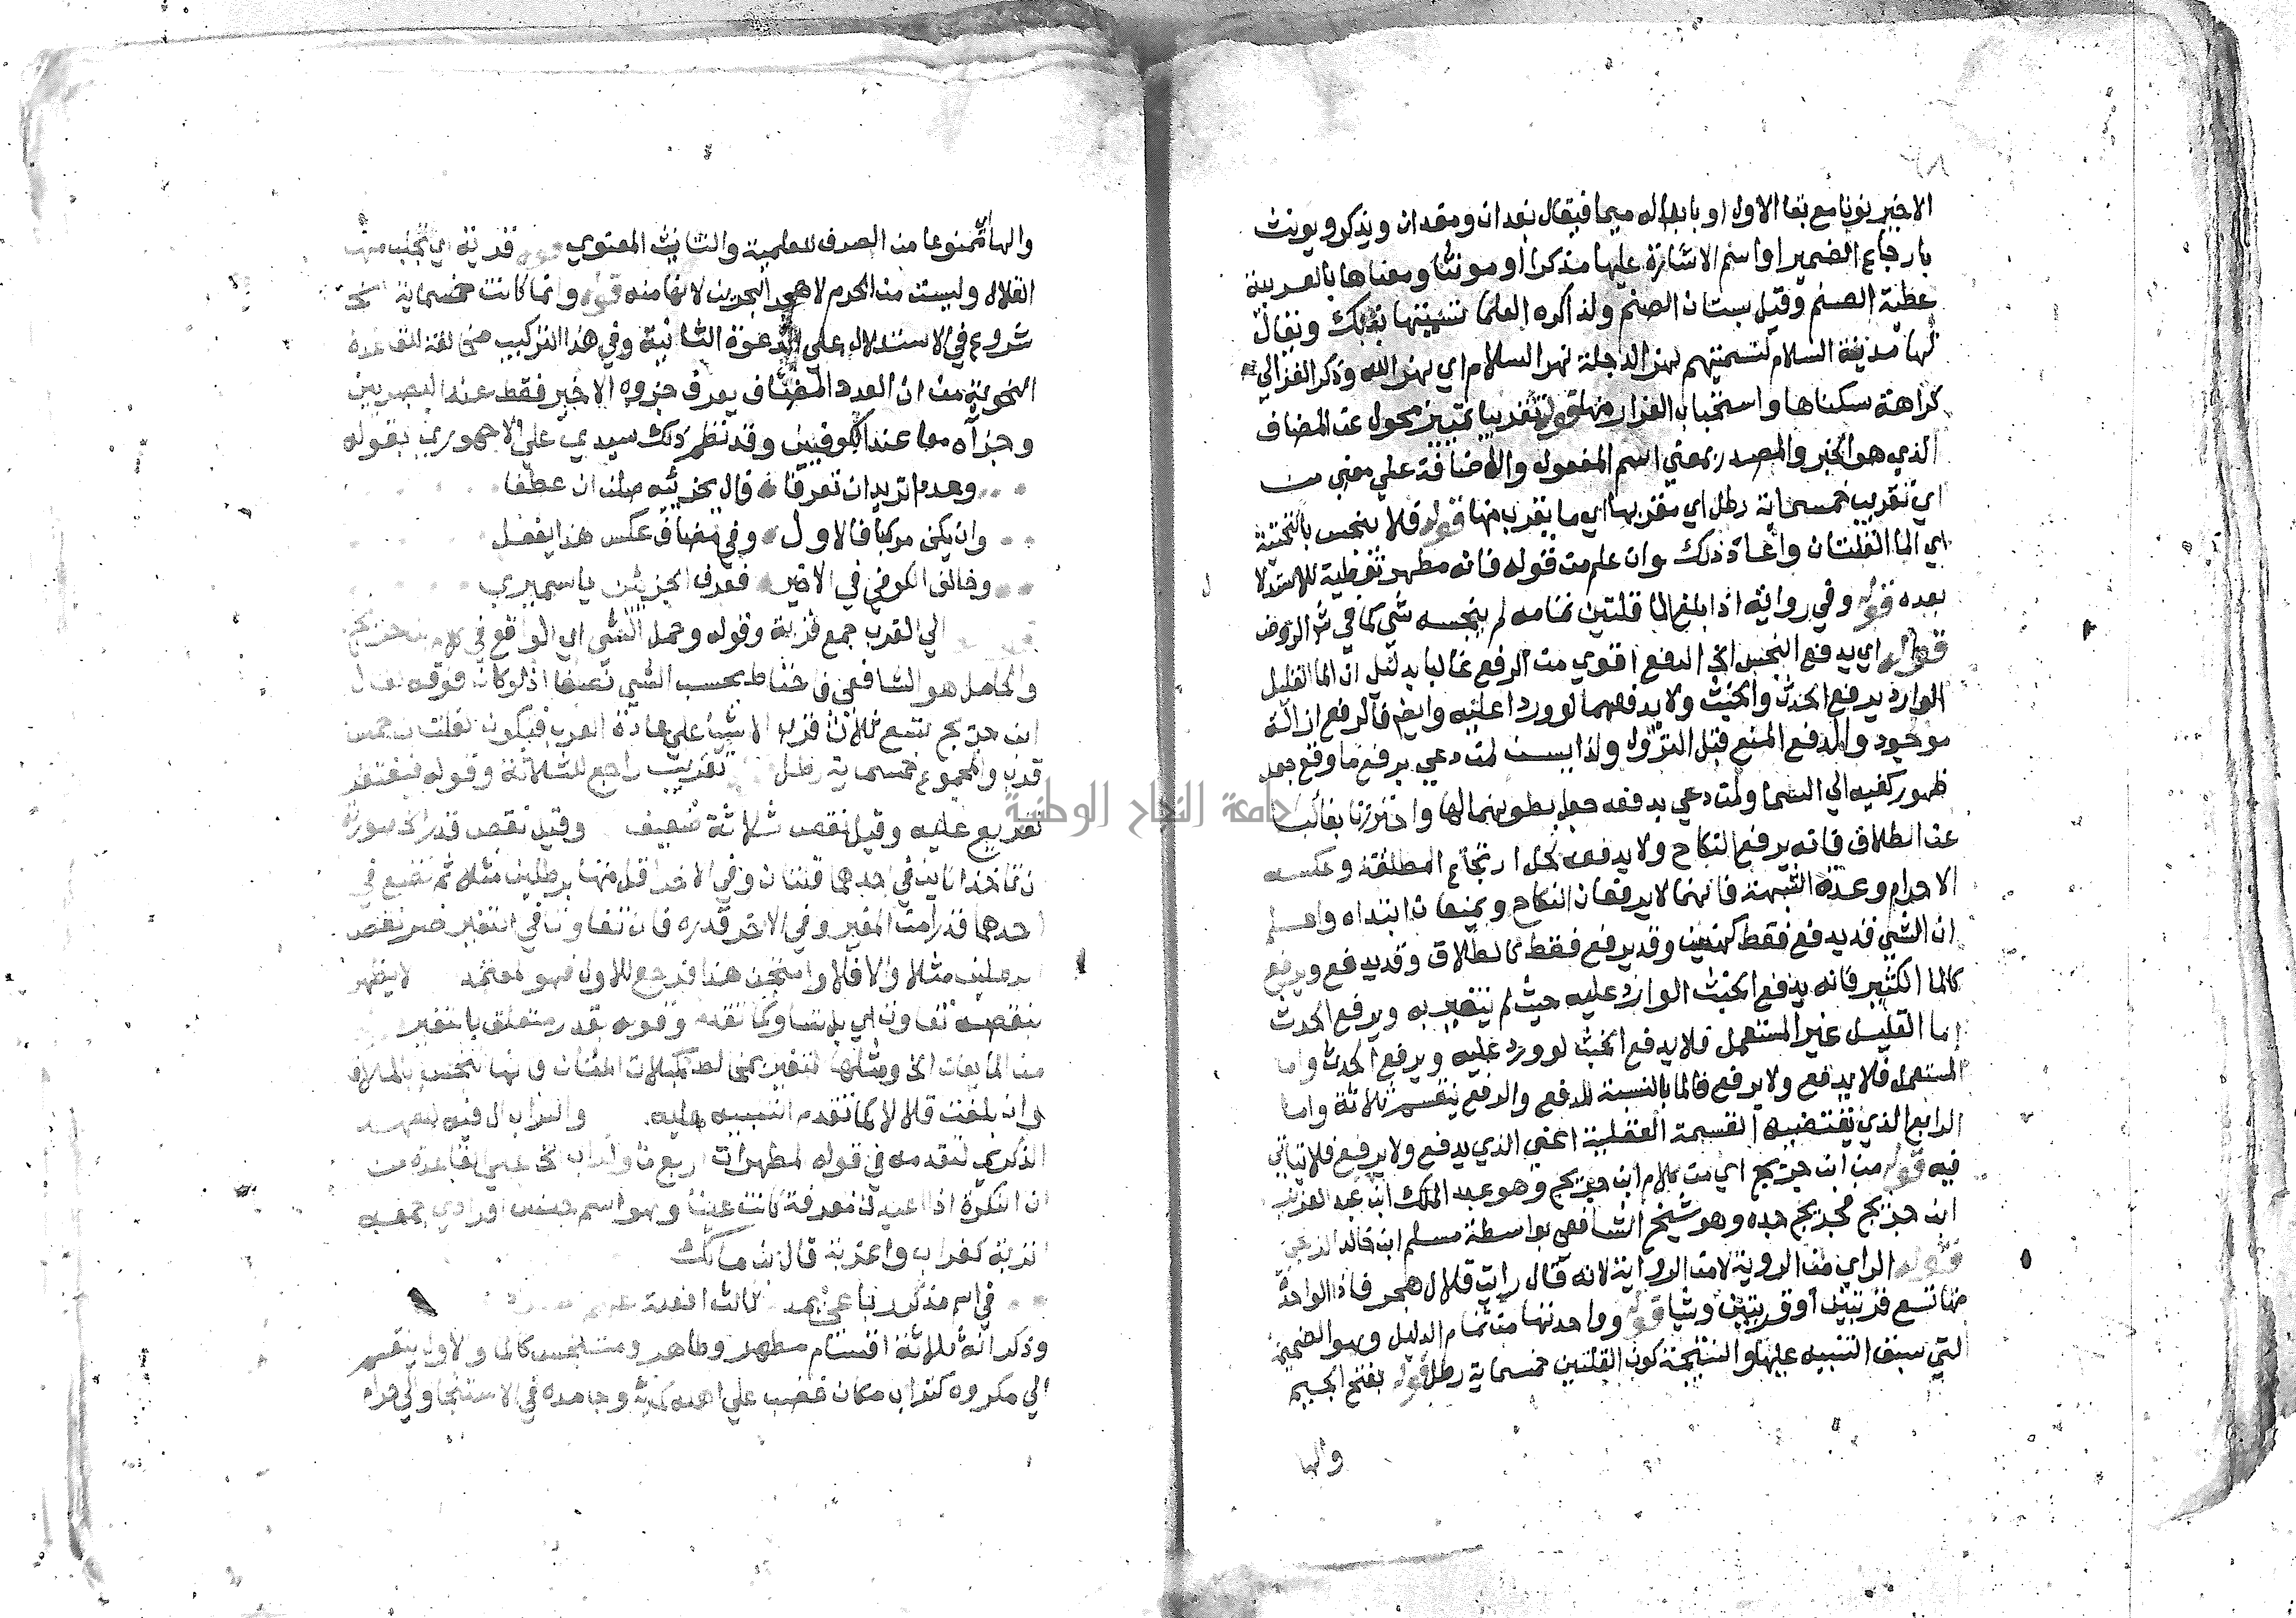 الاخير نونا مع بقا الاول او بابداله ميما فيقال بغدان ومغدان ويذكر ويونث
بارجاع الضمير او اسم الاشارة عليها مذكرا او مونثا ومعناها بالعربية
عطية الصنم وقيل بستان الصنم ولذا كره العلما تسميتها بذلك ويقال
لها مدينة السلام لتسميتهم نهر الدجلة نهر السلام اي نهر الله وذكر الغزالي
كراهة سكناها واستحباب الفرار منها قوله تقريبا تمييز محول عن المضاف
الذي هو الخبر والمصدر بمعني اسم المفعول والاضافة علي معني من
اي تقريب خمسماية رطل اي مقربها اي ما يقرب منها قوله فلا ينجس بالتحتية
اي الما القلتان واعاد ذلك وان علم من قوله فانه مطهر توطية للاستدلا
بعده قوله وفي رواية اذا بلغ الما قلتين تمامه لم ينجسه شي كما في شرح الروض
قوله اي يدفع النجس الخ الدفع اقوي من الرفع غالبا بدليل ان الما القليل
الوارد يرفع الحدث والخبث ولا يدفعهما لو وردا عليه وايضا فالرفع ازالة
موجود والدفع المنع قبل النزول ولذا يسن لمن دعي برفع ما وقع جعل
ظهور كفيه الي السما ولمن دعي بدفعه جعل بطونهما لها واحترزنا بغالبا
عن الطلاق فانه يرفع النكاح ولا يدفعه لحل ارتجاع المطلقة وعكسه
الاحرام وعدة الشبهة فانهما لا يرفعان النكاح ويمنعان ابتداه واعلم
ان الشي قد يدفع فقط كهذين وقد يرفع فقط كالطلاق وقد يدفع ويرفع
كالما الكثير فانه يدفع الخبث الوارد عليه حيث لم يتغير به ويرفع الحدث
اما القليل غير المستعمل فلا يدفع الخبث لو ورد عليه ويرفع الحدث واما
المستعمل فلا يدفع ولا يرفع فالما بالنسبة للدفع والرفع ينقسم ثلاثة واما
الرابع الذي تقتضيه القسمة العقلية اعني الذي يدفع ولا يرفع فلا يتاتي
فيه قوله من ابن جريج اي من كلام ابن جريج وهو عبد الملك ابن عبد العزيز
ابن جريج فجريج جده وهو شيخ الشافعي بواسطة مسلم ابن خالد الزنجي
قوله الراي من الروية لا من الرواية لانه قال رايت قلال هجر فاذا الواحدة
منها تسع قربتين او قربتين وشيا قوله وواحدتها من تمام الدليل وهو الضميمة
التي سبق التنبيه عليها والنتيجة كون القلتين خمسماية رطل قوله بفتح الجيم
والها
والها ممنوعا من الصرف للعلمية والتانيث المعنوي قوله قرية اي تجلب منها
القلال وليست من الحرم لا هجر البحرين لانها منه قوله وانما كانت خمسماية الخ
شروع في الاستدلال علي الدعوة الثانية وفي هذا التركيب مخالفة للقاعدة
النحوية من ان العدد المضاف يعرف جزوه الاخير فقط عند البصريين
وجزآه معا عند الكوفيين وقد نظم ذلك سيدي علي الاجهوري بقوله
وعددا تريد ان تعرفا فال بجزئيه صلن ان عطفا
وان يكن مركبا فالاول وفي مضاف عكس هذا يفعل
وخالف الكوفي في الاخير فعرف الجزئين يا سميري
الي القرب جمع قربة وقوله وحمل الشي اي الواقع في كلام ابن جريج
والحامل هو الشافعي فاحتاط بحسب الشي نصفا اذ لو كان فوقه لقال
ابن جريج تسع ثلاث قرب الا شيا علي عادة العرب فيكون القلتان خمس
قرب والمجموع خمسماية رطل تقريب راجع للثلاثة وقوله فيغتفر
تفريع عليه وقيل نقص ثلاثة ضعيف وقيل نقص قدر الخ صورة
ان تاخذ انايين في احدهما قلتان وفي الاخر اقل منها برطلين مثلا ثم تضع في
احدهما قدرا من المغير وفي الاخر قدره فان تفاوتا في التغير ضر نقص
الرطلين مثلا والا فلا وامتحن هذا فرجع للاول فهو معتمد لا يظهر
بنقصه تفاوت اي بل تساو كما تقدم وقوله بقدر متعلق بالتغير
من المايعات الخ ومثلها
وان بلغت قلالا كما تقدم التنبيه عليه والتراب ال فيه للعهد
الذكري لتقدمه في قوله المطهرات اربع ما وتراب الخ علي القاعدة من
ان النكرة اذا اعيدت معرفة كانت عينا وهو اسم جنس افرادي جمعه
اتربة كغراب واغربة قال ابن مالك
في اسم مذكر رباعي بمد ثالث افعلة عنهم اطرد
وذكر انه ثلاثة اقسام مطهر وطاهر ومتنجس كالما والاول ينقسم
الي مكروه كتراب مكان غضب علي اهله كبئر وجامده في الاستنجا والي حرام
جامعة النجاح الوطنية